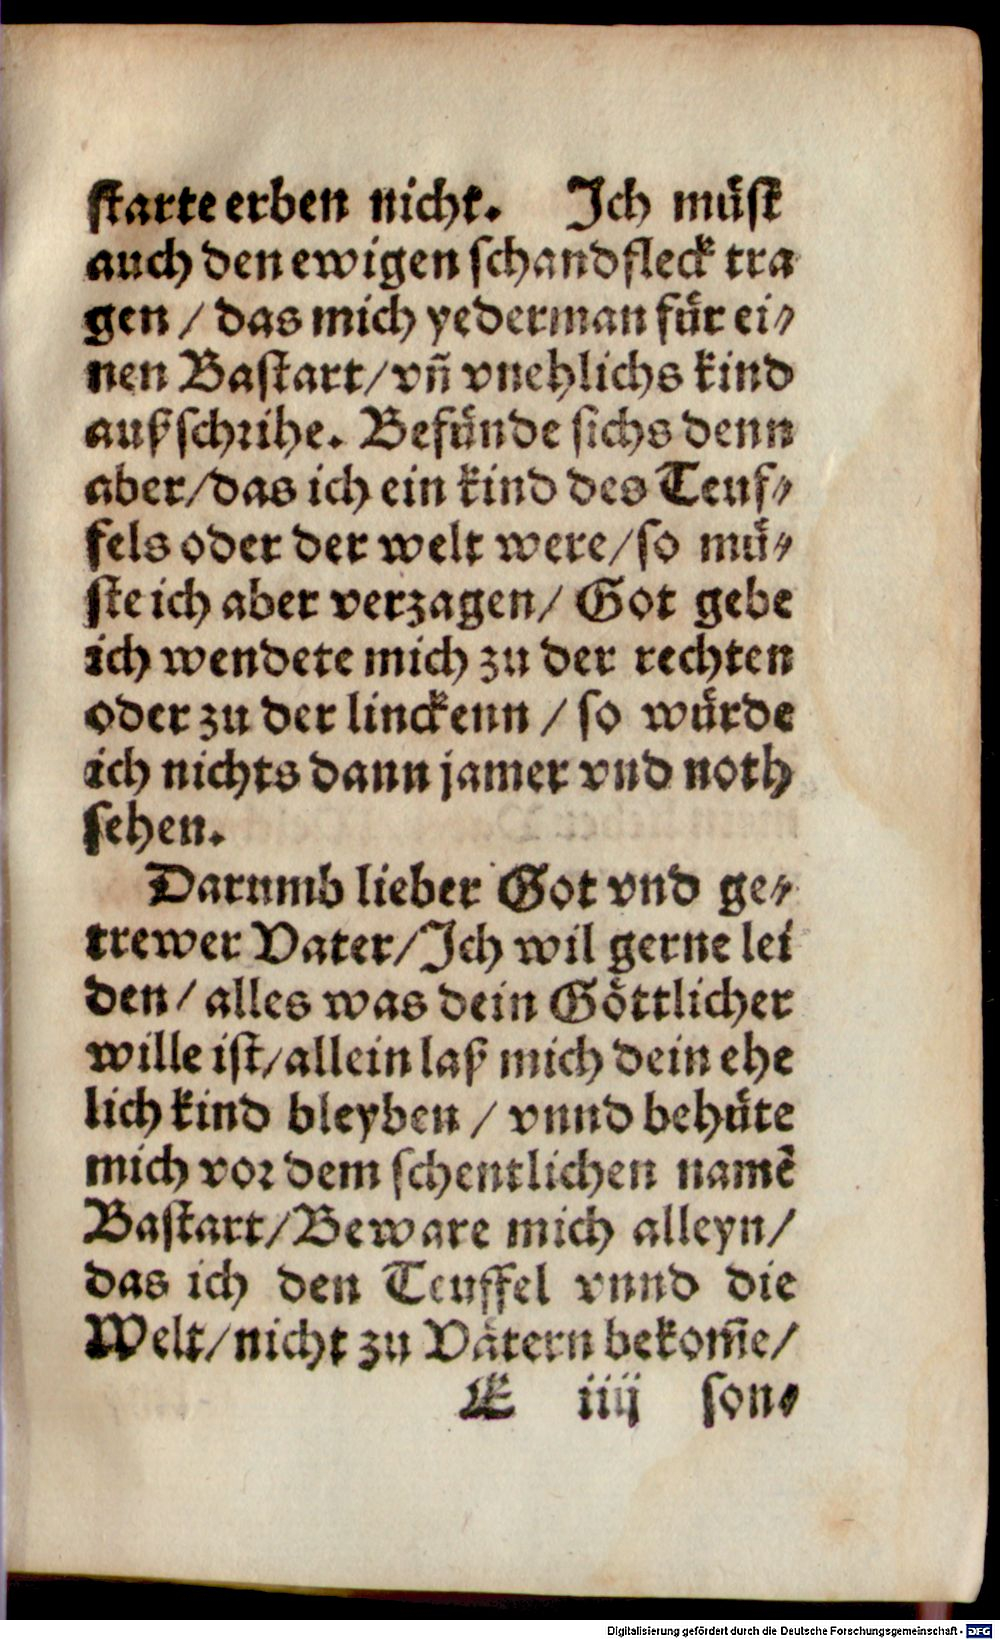 starte erben nicht. Ich müst
auch den ewigen schandfleck tra
gen / das mich yederman für ei⸗
nen Bastart / vñ vnehlichs kind
außschrihe. Befünde sichs denn
aber / das ich ein kind des Teuf⸗
fels oder der welt were / so mü⸗
ste ich aber verzagen / Got gebe
ich wendete mich zu der rechten
oder zu der linckenn / so würde
ich nichts dann jamer vnd noth
sehen.
Darumb lieber Got vnd ge⸗
trewer Vater / Ich wil gerne lei
den / alles was dein Göttlicher
wille ist / allein laß mich dein ehe
lich kind bleyben / vnnd behüte
mich vor dem schentlichen namẽ
Bastart / Beware mich alleyn /
das ich den Teuffel vnnd die
Welt / nicht zu Vätern bekom̃e /
E iiij son⸗
Digitalisierung gefördert durch die Deutsche Forschungsgemeinschaft - DFG